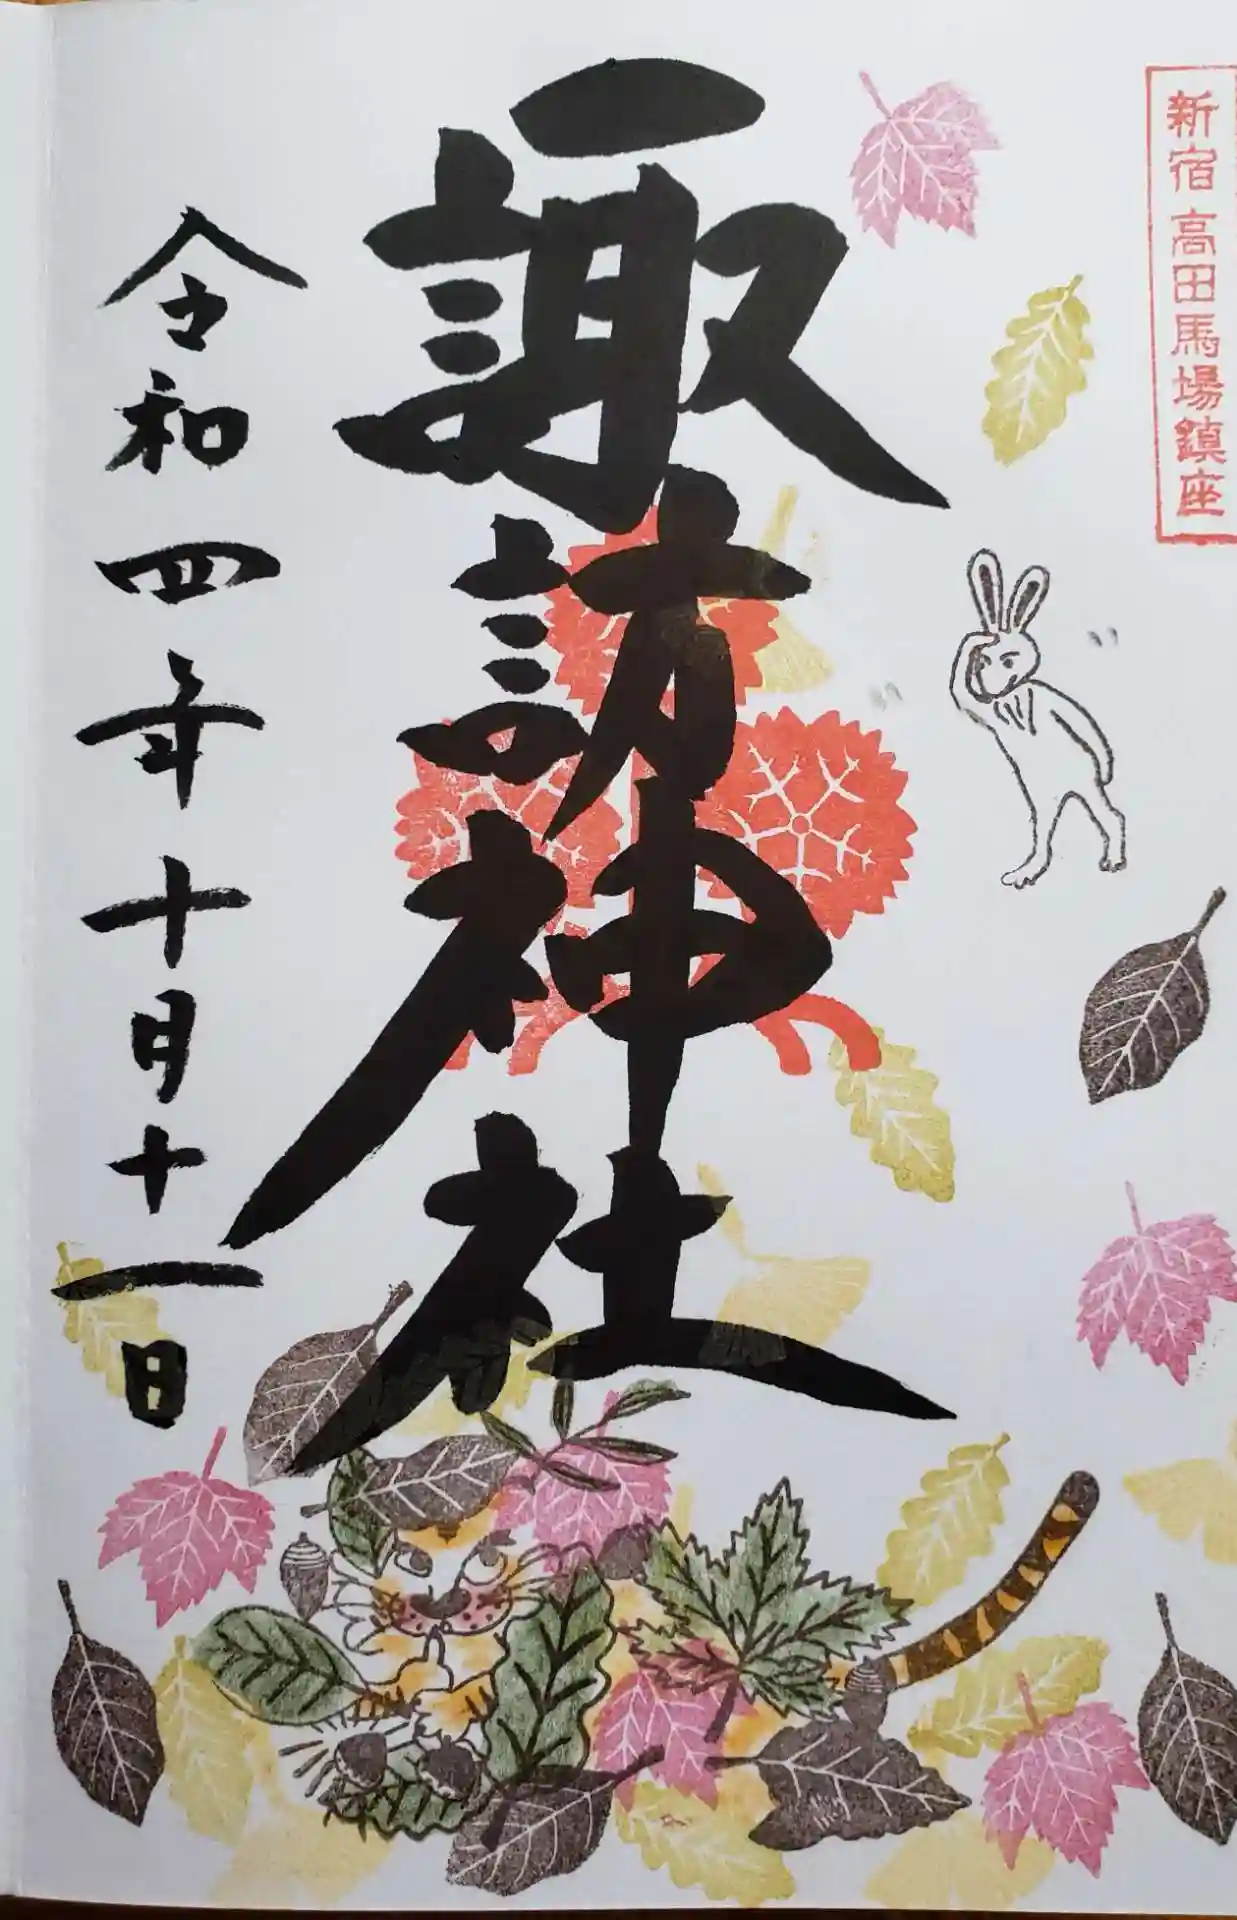 新宿高田馬場鎮座
諏訪神社
令和四年十月十一日